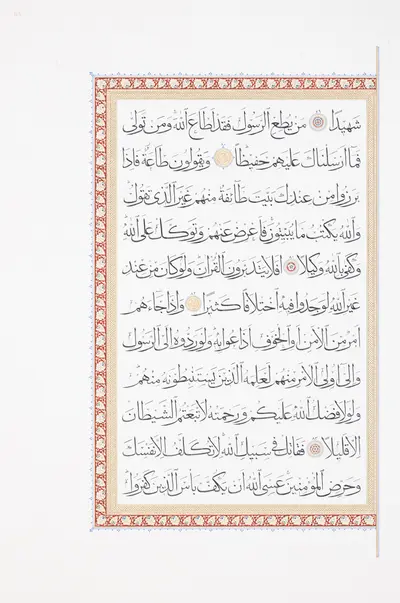 شهيدا من يطع الرسول فقد اطاع الله ومن تولى
فما ارسلناك عليهم حفيظا ويقولون طاعة فاذا
برزوا من عندك بيت طائفة منهم غير الذي تقول
والله يكتب ما يبيتون فاعرض عنهم وتوكل على الله
وكفى بالله وكيلا افلا يتدبرون القرآن ولو كان من عند
غير الله لوجدوا فيه اختلافا كثيرا واذا جاءهم
امر من الامن او الخوف اذاعوا به ولو ردوه الى الرسول
والى اولي الامر منهم لعلمه الذين يستنبطونه منهم
ولولا فضل الله عليكم ورحمته لاتبعتم الشيطان
الا قليلا فقاتل في سبيل الله لا تكلف الا نفسك
وحرض المؤمنين عسى الله ان يكف بأس الذين كفروا